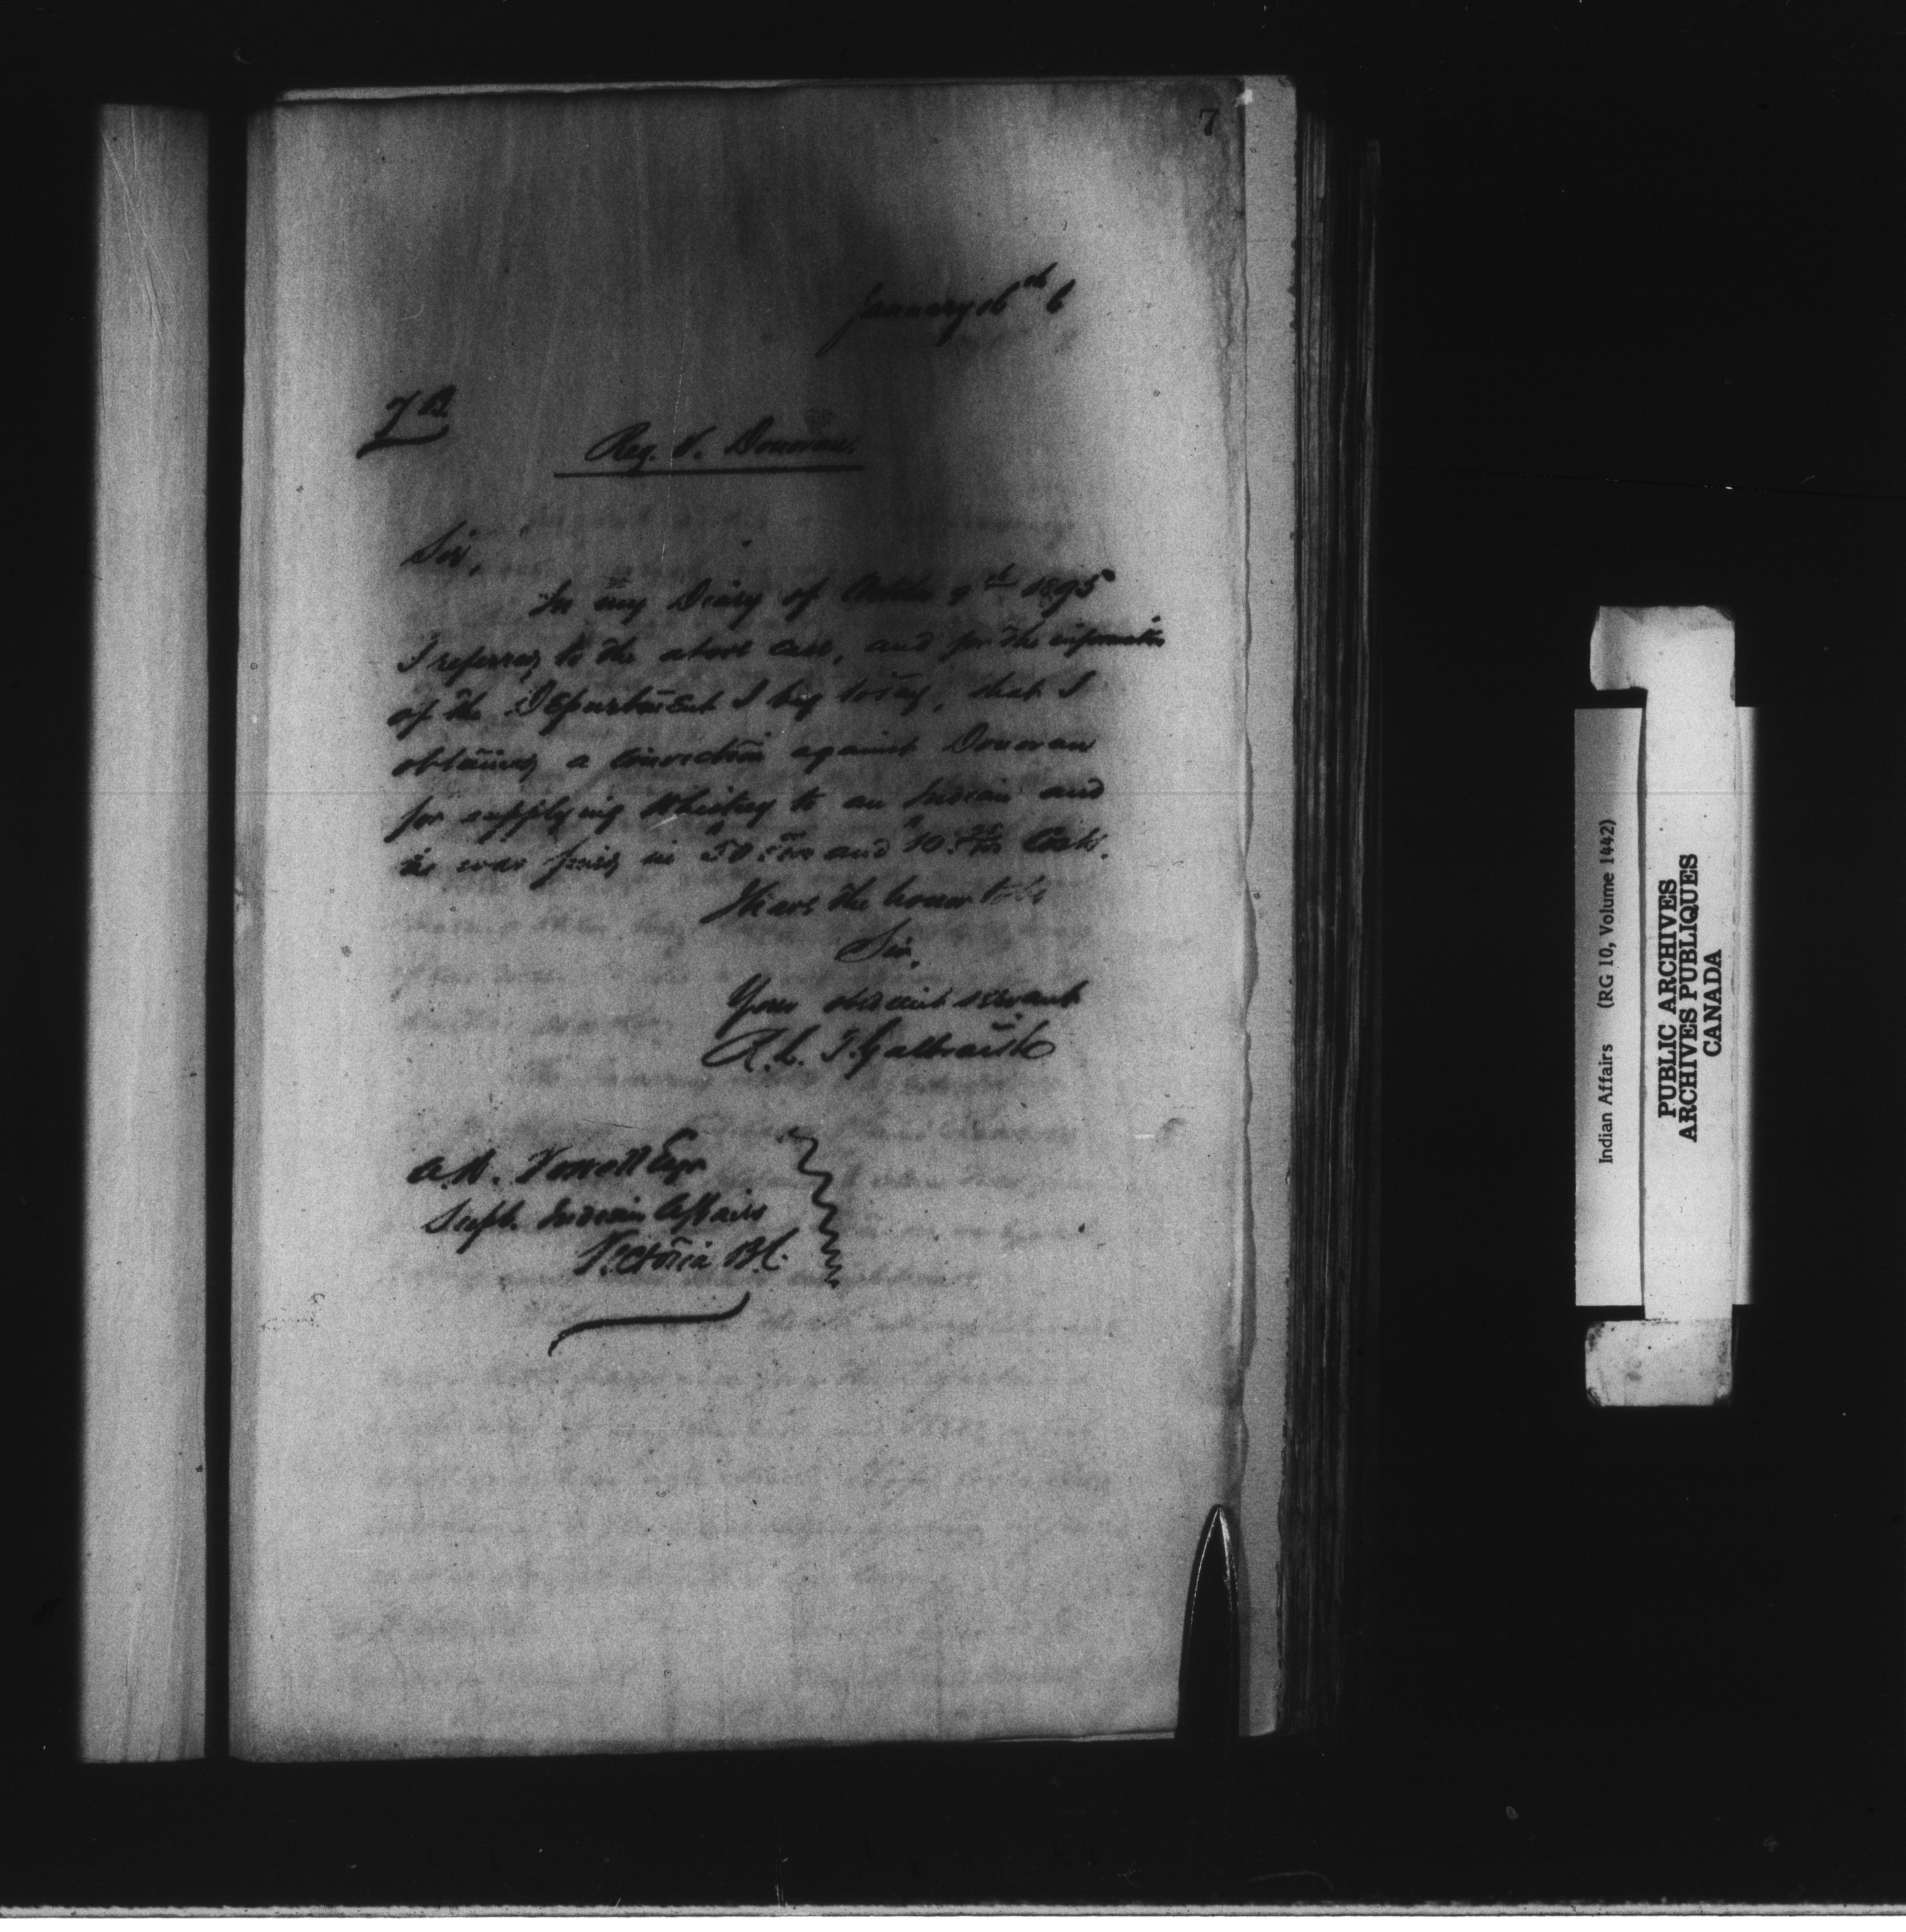 7
January 16th 6
7 B
Reg. V. Donovan.
Sir,
In my Diary of October 9th 1895
I referred to the above case, and for the information
of the Department I beg to say, that I
obtained a conviction against Donovan
for supplying Whiskey to an Indian and
he was fined in 50 and 10 Costs.
I have the honor to be
Sir,
Your obedient servant
R. L. T. Galbraith
A. W. Vowell Esqr
Supt. Indian Affairs
Victoria B.C.
Indian Affairs (RG 10, Volume 1442)
PUBLIC ARCHIVES
ARCHIVES PUBLIQUES
CANADA